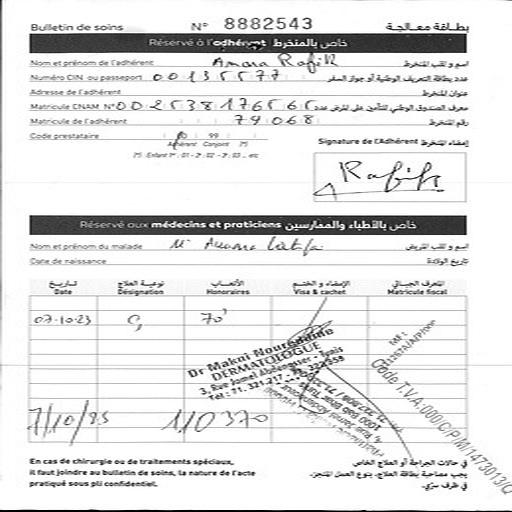 Bulletin de soins N° 8882543 بطاقة معالجة
Réservé à l'adhérent خاص بالمنخرط
Nom et prénom de l'adhérent Amara Rafik اسم و لقب المنخرط
Numéro CIN ou passeport 00135577 عدد بطاقة التعريف الوطنية أو جواز السفر
Adresse de l'adhérent عنوان المنخرط
Matricule CNAM N° 002538176565 معرف الصندوق الوطني للتأمين على المرض عدد
Matricule de l'adhérent 74068 رقم المنخرط
Code prestataire 99 Signature de l'Adhérent إمضاء المنخرط
Adhérent Conjoint
Rafik
Réservé aux médecins et praticiens خاص بالأطباء والممارسين
Nom et prénom du malade Mr Amara اسم و لقب المريض
Date de naissance تاريخ الولادة
تاريخ نوعية العلاج الأتعاب الإمضاء و الختم المعرف الجبائي
Date Désignation Honoraires Visa & cachet Matricule fiscal
07-10-23 70
Dr Makni Noureddine
DERMATOLOGUE
3, Rue Jamel Abdennasser - Tunis
Tel : 71.321.217
7/10/23 110370
Code T.V.A:000/C/P/M/1473013/Q
En cas de chirurgie ou de traitements spéciaux,
il faut joindre au bulletin de soins, la nature de l'acte
pratiqué sous pli confidentiel.
في حالات الجراحة أو العلاج الخاص
يجب مصاحبة بطاقة العلاج، بنوع العمل المنجز،
في ظرف سري.